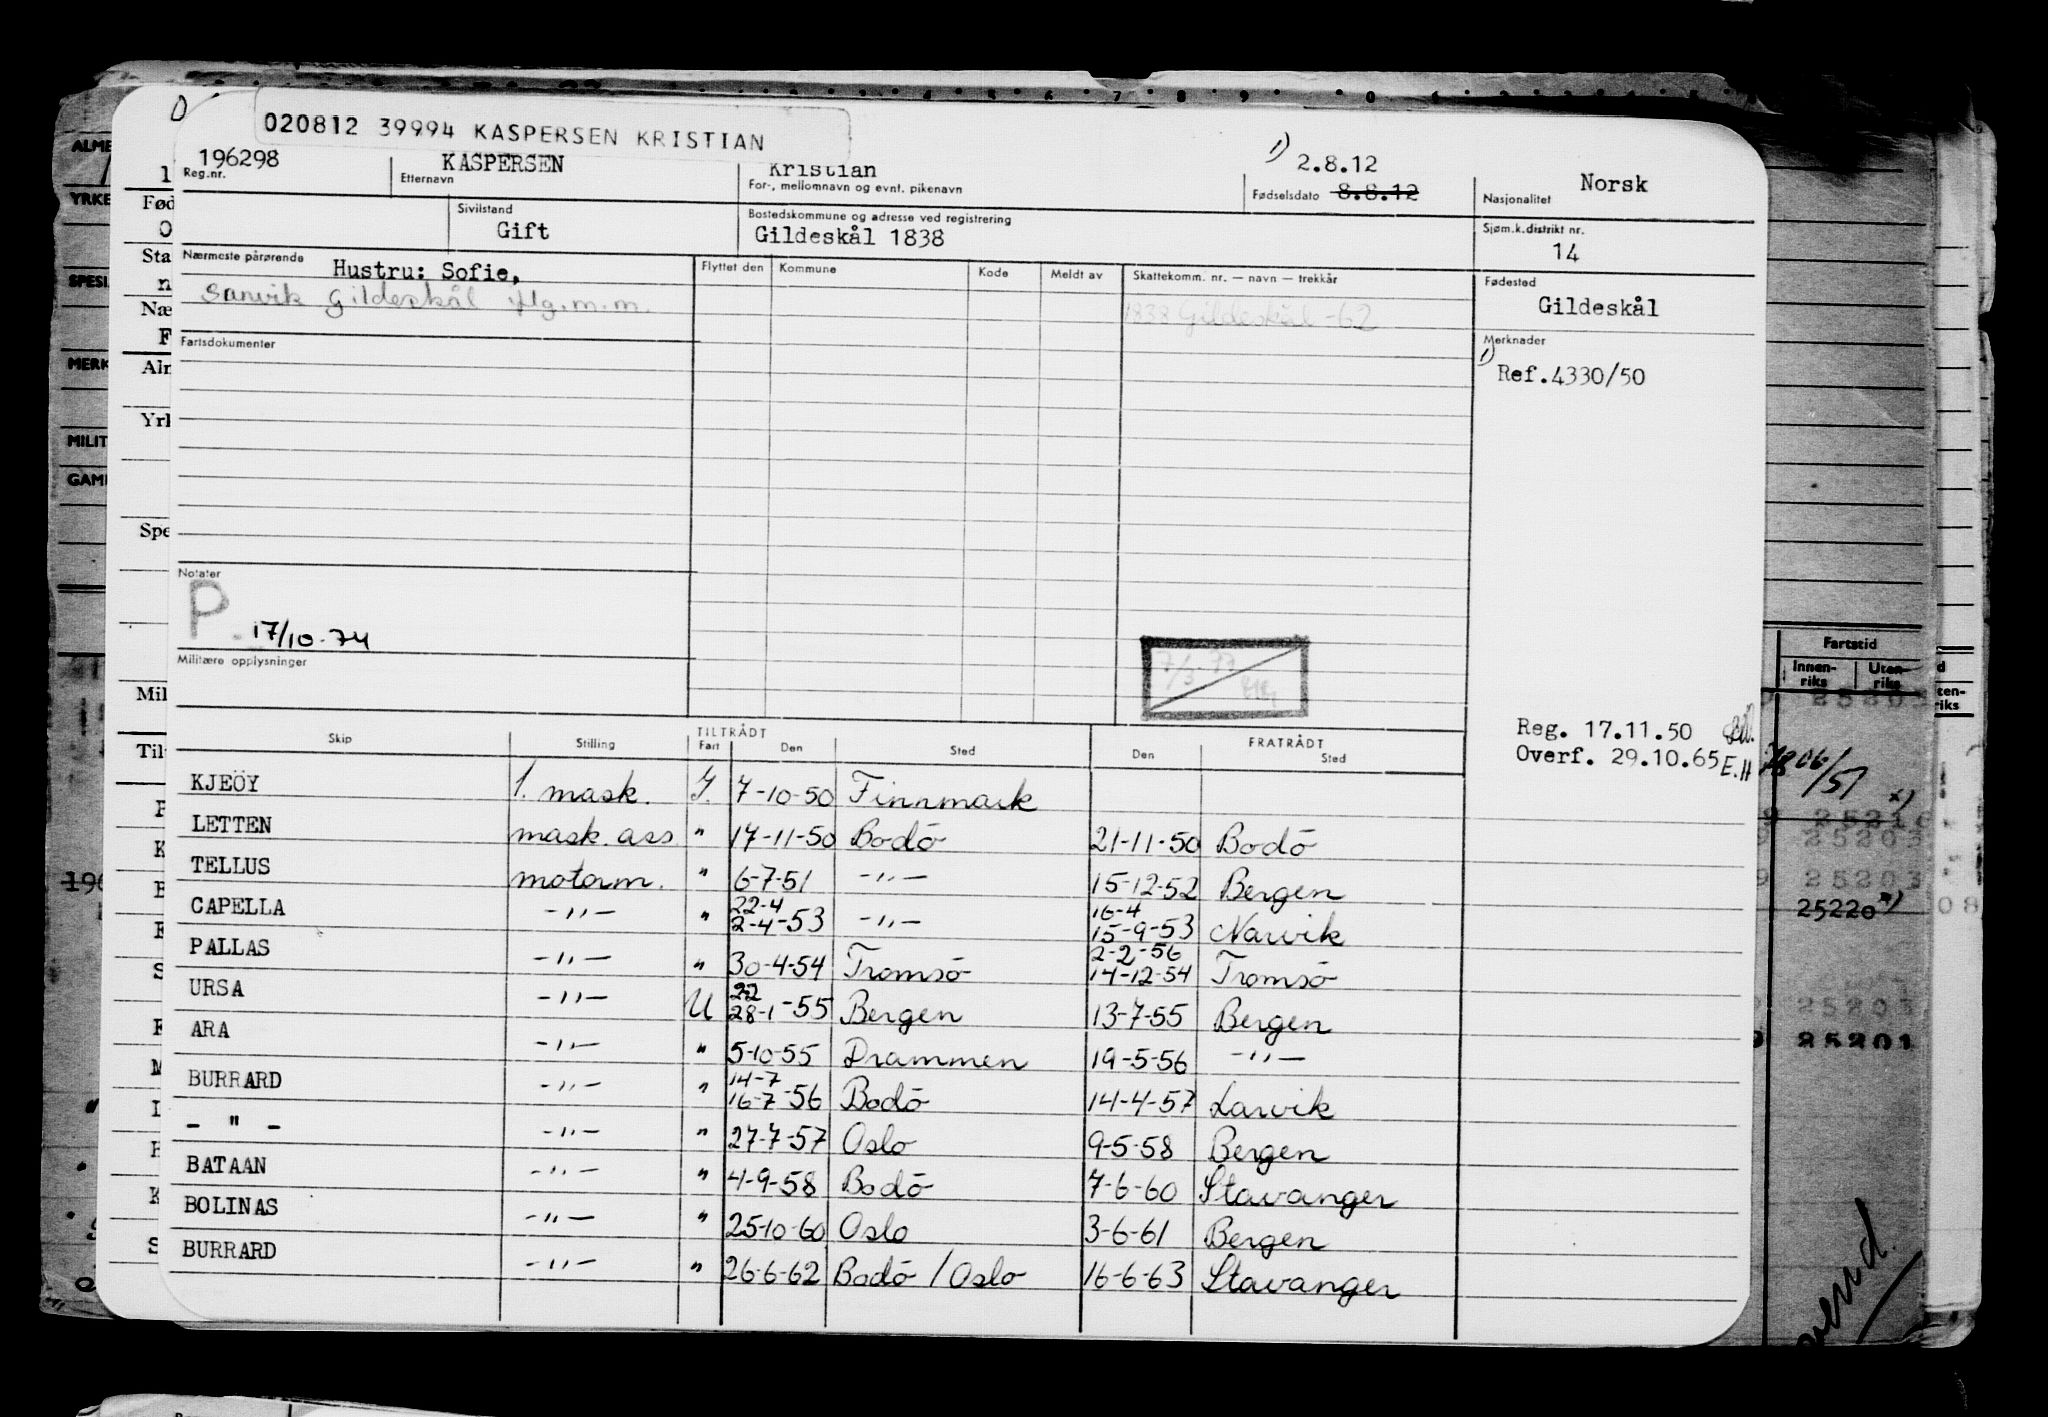 020812 39994 KASPERSEN KRISTIAN
196298 KASPERSEN Kristian 1) 2.8.12 Norsk
Reg.nr. Etternavn For-, mellomnavn og evnt. pikenavn Fødselsdato 8.8.12 Nasjonalitet
Sivilstand Bostedskommune og adresse ved registrering Sjøm.k.distrikt nr.
Gift Gildeskål 1838 14
Nærmeste pårørende Hustru: Sofie, Flyttet den Kommune Kode Meldt av Skattekomm. nr. — navn — trekkår Fødested
Sanvik Gildeskål 1838 Gildeskål -62 Gildeskål
Fartsdokumenter Merknader
1) Ref.4330/50
Notater
P. 17/10-74
Militære opplysninger
7/3-77
Reg. 17.11.50
Overf. 29.10.65 E.H
Skip Stilling TILTRÅDT Fart Den Sted FRATRÅDT Den Sted
KJEÖY 1. mask. I. 7-10-50 Finnmark
LETTEN mask. ass " 17-11-50 Bodö 21-11-50 Bodö
TELLUS motorm. " 6-7-51 -"- 15-12-52 Bergen
CAPELLA -"- " 22-4 2-4-53 -"- 16-4 15-9-53 Narvik
PALLAS -"- " 30-4-54 Tromsö 2-2-56 14-12-54 Tromsö
URSA -"- U 22 28-1-55 Bergen 13-7-55 Bergen
ARA -"- " 5-10-55 Drammen 19-5-56 -"-
BURRARD -"- " 14-7 16-7-56 Bodö 14-4-57 Larvik
- " - -"- " 27-7-57 Oslo 9-5-58 Bergen
BATAAN -"- " 4-9-58 Bodö 7-6-60 Stavanger
BOLINAS -"- " 25-10-60 Oslo 3-6-61 Bergen
BURRARD -"- " 26-6-62 Bodö / Oslo 16-6-63 Stavanger
ALME
YRKE
SPESI
MERK
MILIT
GAM
Fød
Sta
Næ
Aln
Yrk
Spe
Mil
Til
Fartstid
Innen-riks Uten-riks
25203
25203
25203
25220 x)
25203
25201